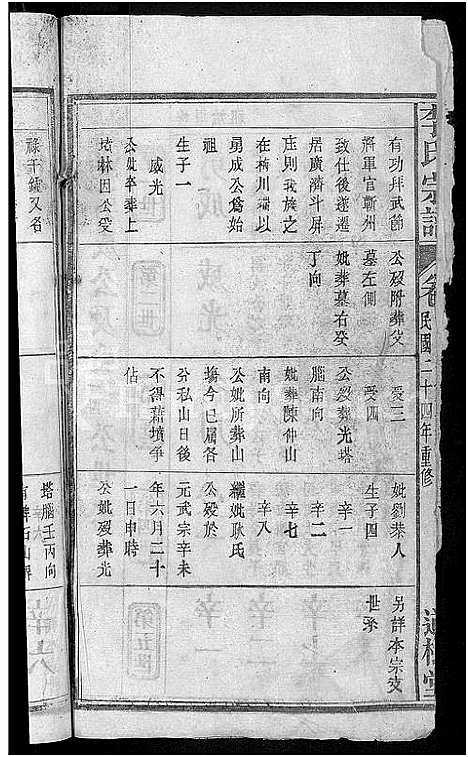 李氏宗譜
卷
民國二十四年重修
有功拜武節
將軍官蘄州
致仕後遂遷
居廣濟斗屏
庄則我族之
在橫川港以
勇成公爲始
祖
生子一
威光
公妣卒葬上
塔林因公受
公歿附葬父
墓左側
妣葬墓右癸
丁向
受三
受四
公歿葬光塔
腦南向
妣葬陳仲山
南向
公妣所葬山
塲今已屬各
分私山日後
不得藉墳爭
佔
妣劉恭人
生子四
辛一
辛二
辛七
辛八
繼妣耿氏
公歿於
元武宗辛未
年六月二十
一日申時
公妣歿葬光
另詳本宗支
世系
祿千鍾又名
塔腦壬丙向